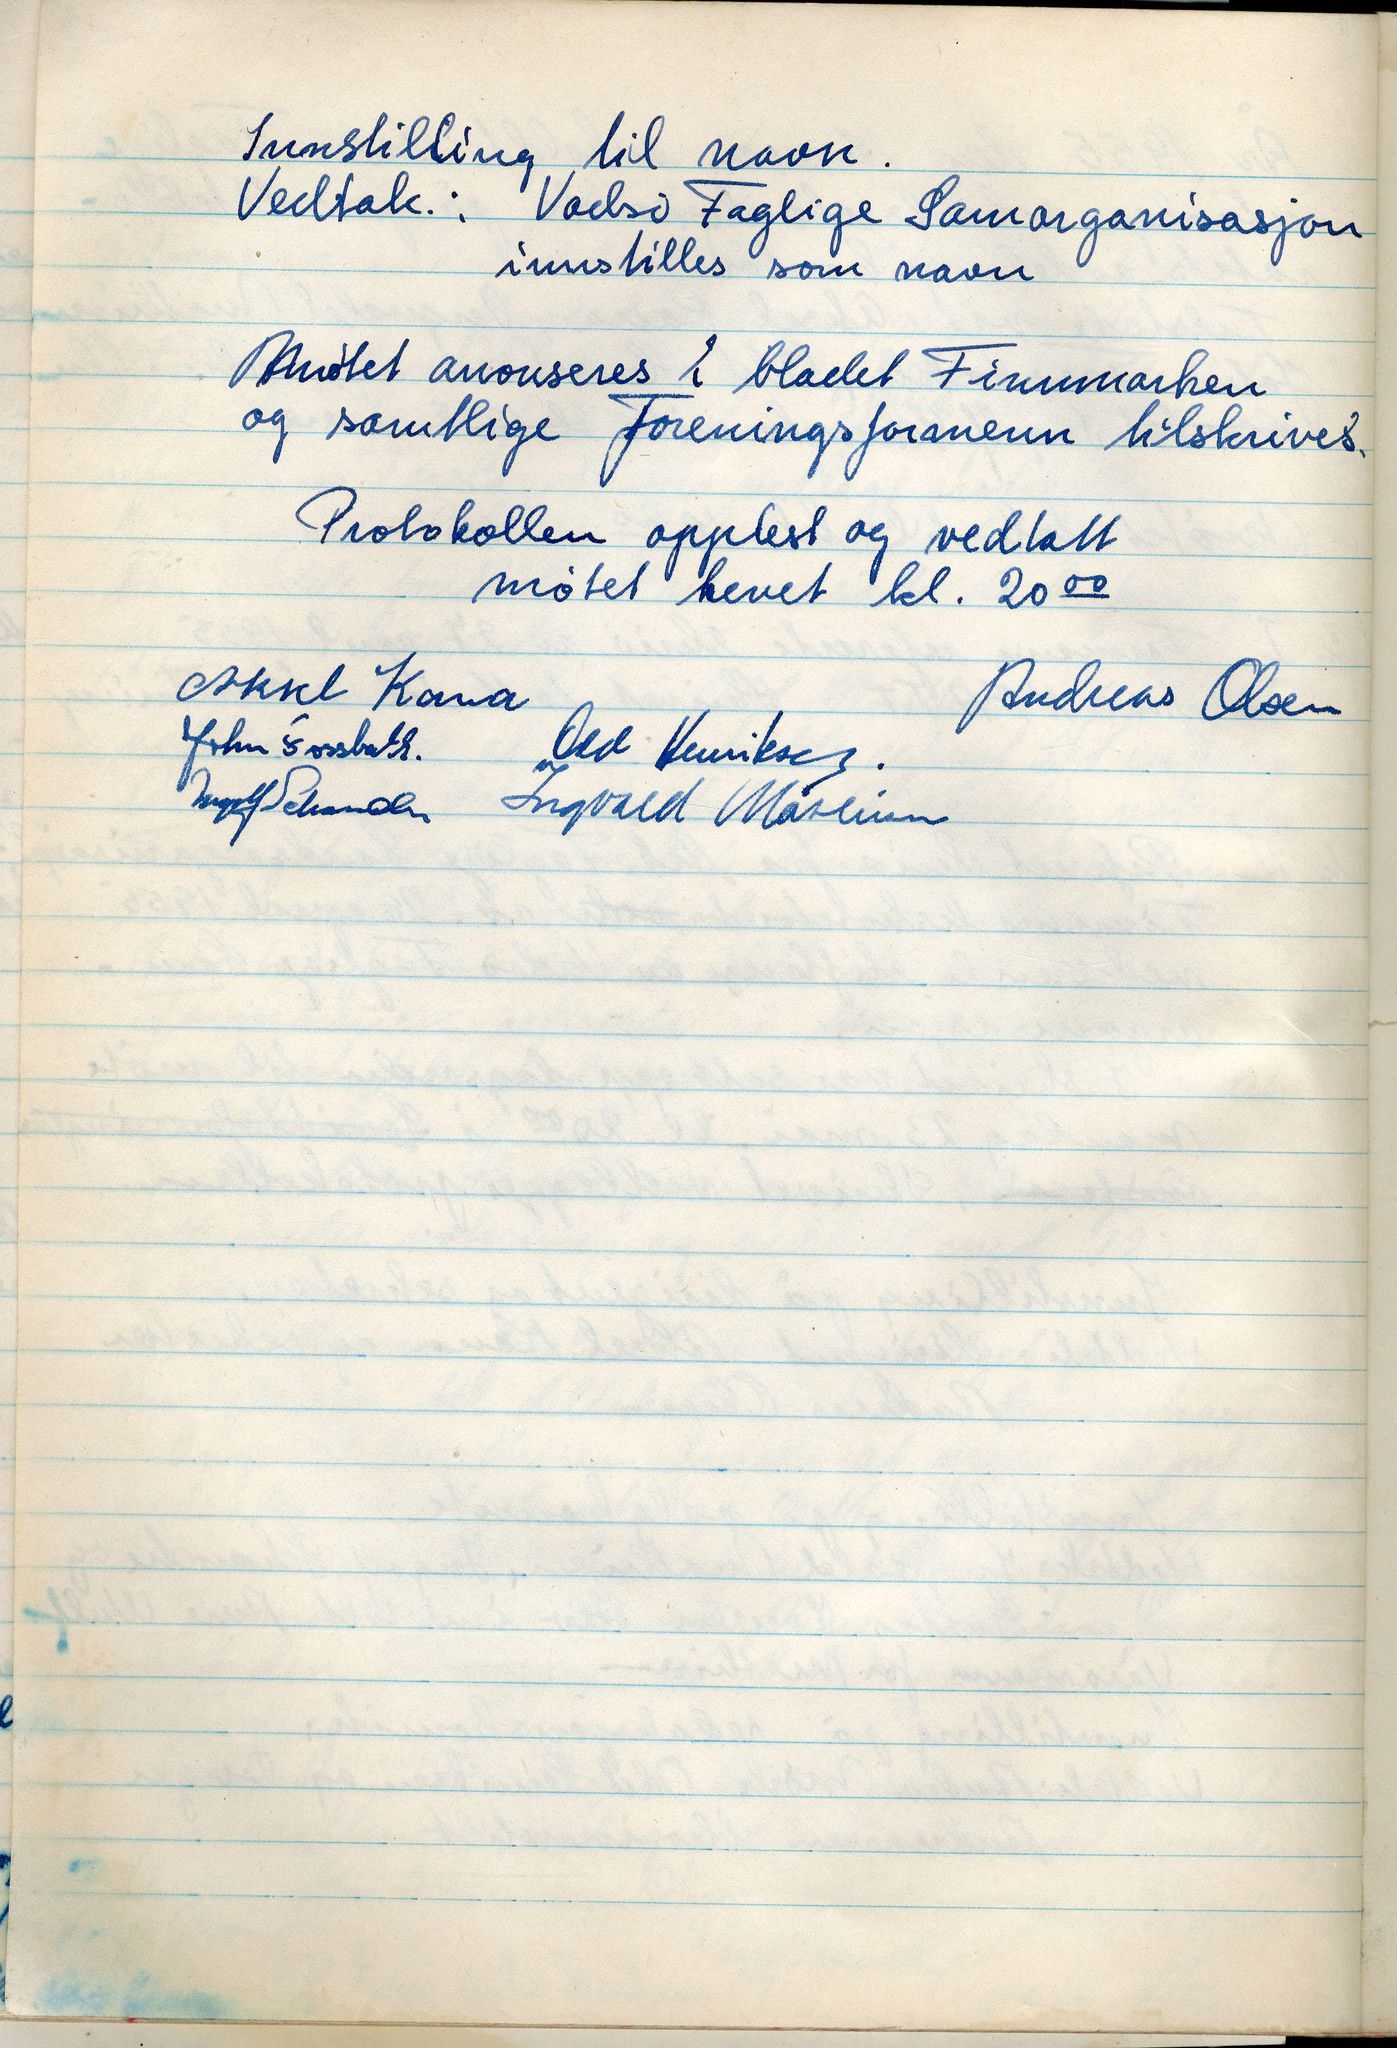 Innstilling til navn.
Vedtak.: Vadsö Faglige Samorganisasjon
innstilles som navn
Møtet anonseres i bladet Finnmarken
og samtlige Foreningsformenn tilskrives.
Protokollen opplest og vedtatt
møtet hevet kl. 20 00
Aksel Kana Andreas Olsen
John Fossbakk. Odd Henriksen.
Ingvald